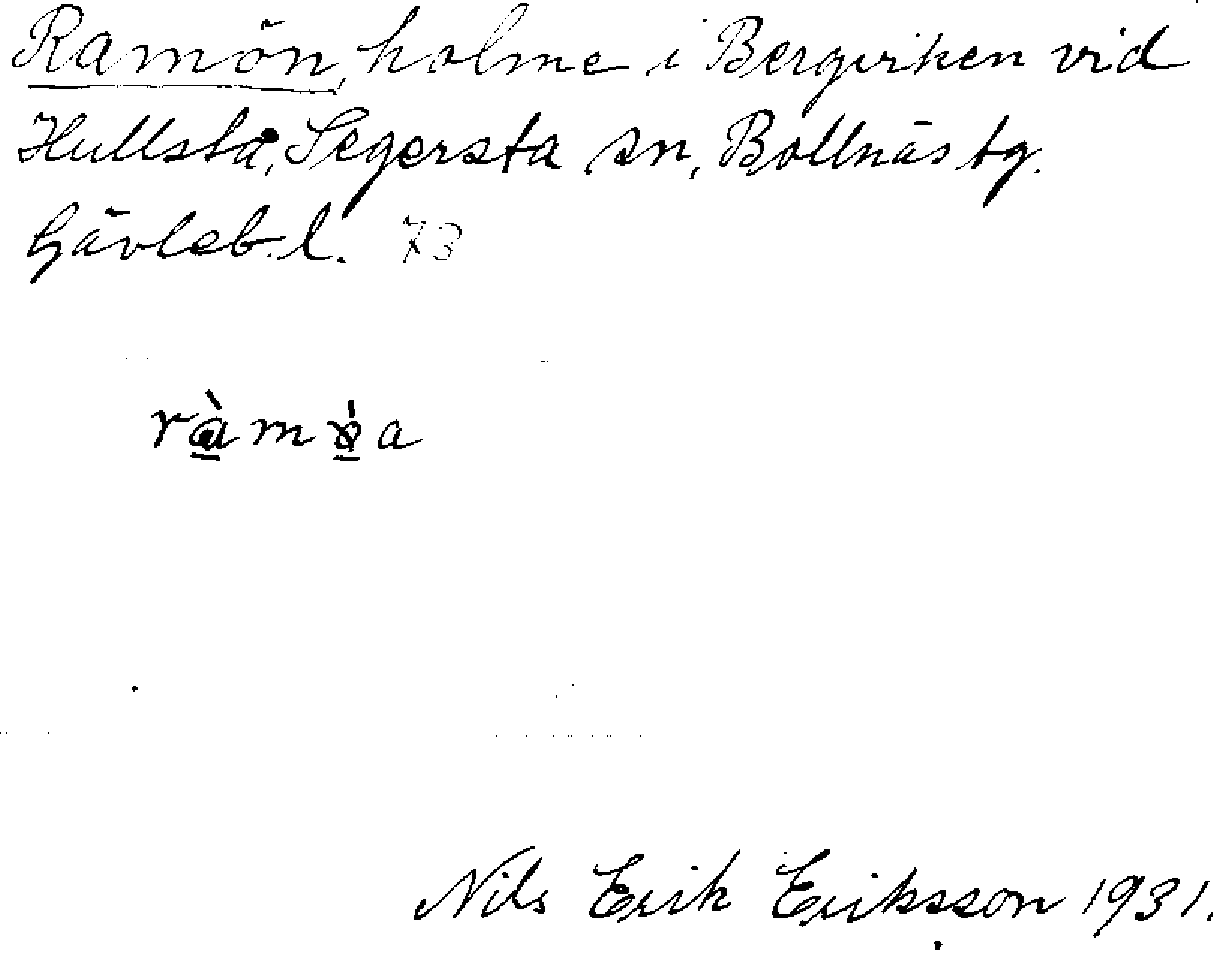 Ramön, holme i Bergviken vid
Hullsta, Segersta sn, Bollnäs tg.
Gävleb. l. 73
Nils Erik Eriksson 1931.